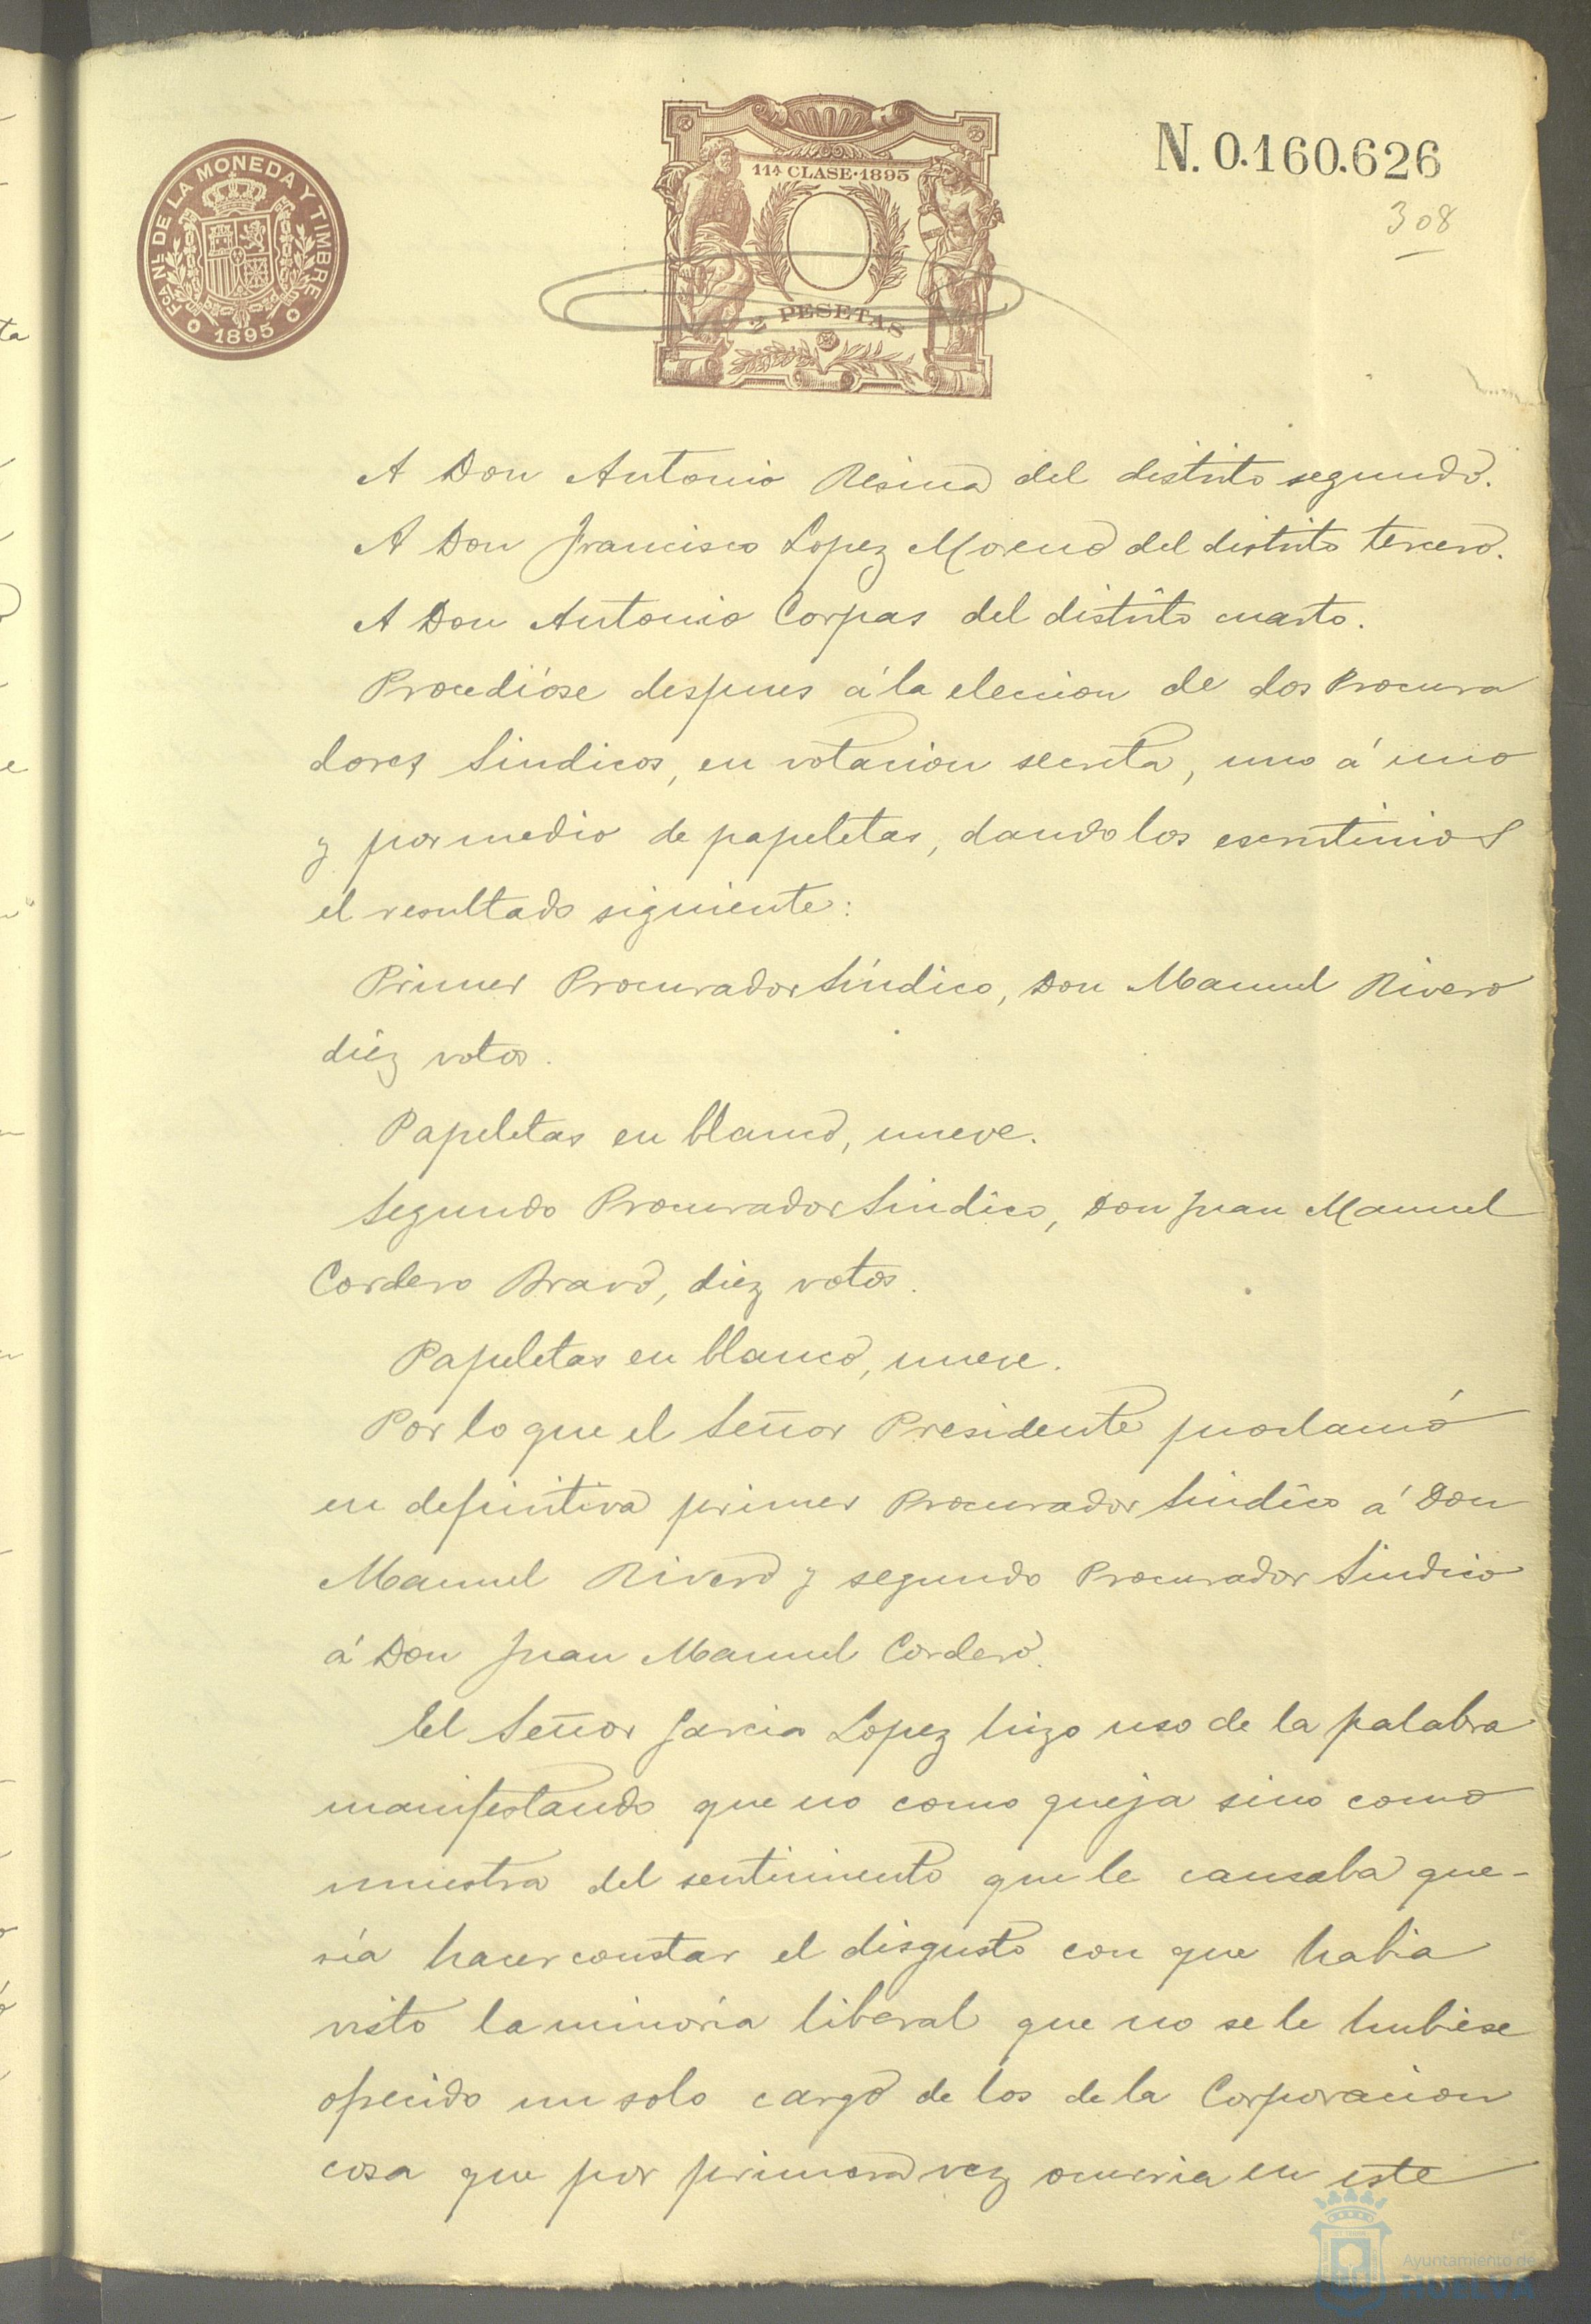 FCA NL DE LA MONEDA Y TIMBRE
1895
11ª CLASE·1895
2 PESETAS
N. 0.160.626
308
A Don Antonio Resina del distrito segundo.
A Don Francisco Lopez Moreno del distrito tercero.
A Don Antonio Corpas del distrito cuarto.
Procedióse despues á la eleccion de dos Procura
dores Sindicos, en votacion secreta, uno á uno
y por medio de papeletas, dando los escrutinios
el resultado siguiente:
Primer Procurador Síndico, Don Manuel Rivero
diez votos.
Papeletas en blanco, nueve.
Segundo Procurador Sindico, Don Juan Manuel
Cordero Bravo, diez votos.
Papeletas en blanco, nueve.
Por lo que el Señor Presidente proclamó
en definitiva primer Procurador Sindico á Don
Manuel Rivero y segundo Procurador Sindico
á Don Juan Manuel Cordero.
El Señor Garcia Lopez hizo uso de la palabra
manifestando que no como queja sino como
muestra del sentimiento que le causaba que-
ria hacer constar el disgusto con que habia
visto la minoria liberal que no se le hubiese
ofrecido un solo cargo de los de la Corporacion
cosa que por primera vez ocurria en este
Ayuntamiento de
HUELVA